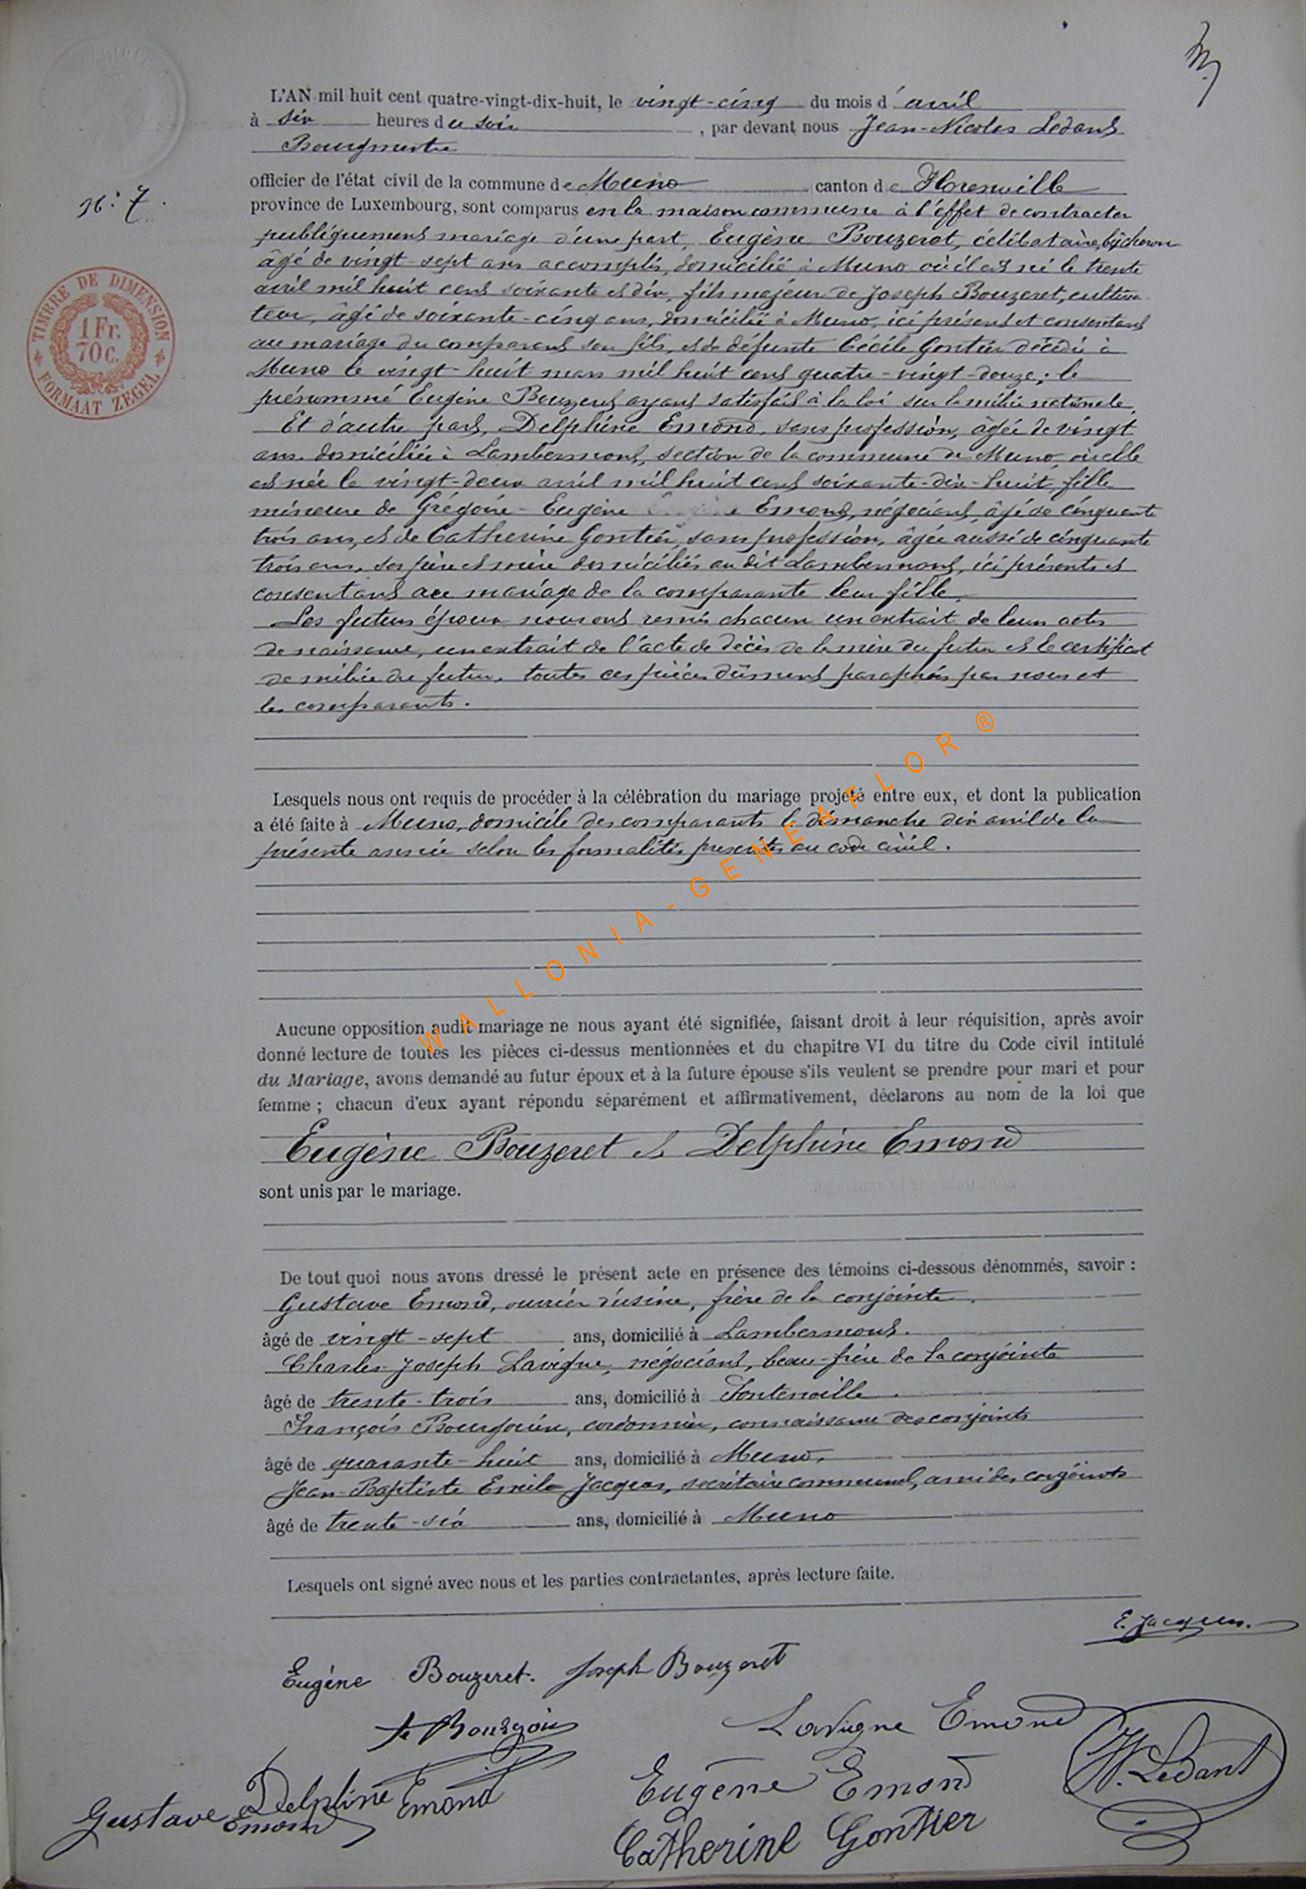 L'AN mil huit cent quatre-vingt-dix-huit, le vingt-cinq du mois d'avril
à six heures du soir, par devant nous Jean-Nicolas Ledant
Bourgmestre
officier de l'état civil de la commune de Muno canton de Florenville
N°: 7.
province de Luxembourg, sont comparus en la maison commune à l'effet de contracter
publiquement mariage d'une part, Eugène Bouzeret, célibataire, bûcheron
âgé de vingt-sept ans accomplis, domicilié à Muno où il est né le trente
avril mil huit cent soixante et dix, fils majeur de Joseph Bouzeret, cultiva-
teur, âgé de soixante-cinq ans, domicilié à Muno, ici présent et consentant
au mariage du comparant son fils, et de défunte Cécile Gontier décédée à
Muno le vingt-huit mars mil huit cent quatre-vingt-douze; le
prénommé Eugène Bouzeret ayant satisfait à la loi sur la milice nationale.
Et d'autre part, Delphine Emond, sans profession, âgée de vingt
ans domiciliée à Lambermont, section de la commune de Muno où elle
est née le vingt-deux avril mil huit cent soixante-dix-huit, fille
mineure de Grégoire-Eugène Emond, négociant, âgé de cinquante
trois ans, et de Catherine Gontier, sans profession, âgée aussi de cinquante
trois ans, ses père et mère domiciliés au dit Lambermont, ici présents et
consentant au mariage de la comparante leur fille.
Les futurs époux nous ont remis chacun un extrait de leur acte
de naissance, un extrait de l'acte de décès de la mère du futur et le certificat
de milice du futur, toutes ces pièces dûment paraphées par nous et
les comparants.
TIMBRE DE DIMENSION
1 Fr.
70 C.
FORMAAT ZEGEL
Lesquels nous ont requis de procéder à la célébration du mariage projeté entre eux, et dont la publication
a été faite à Muno, domicile des comparants le dimanche dix avril de la
présente année selon les formalités prescrites au code civil.
WALLONIA-GENEAFLOR®
Aucune opposition audit mariage ne nous ayant été signifiée, faisant droit à leur réquisition, après avoir
donné lecture de toutes les pièces ci-dessus mentionnées et du chapitre VI du titre du Code civil intitulé
du Mariage, avons demandé au futur époux et à la future épouse s'ils veulent se prendre pour mari et pour
femme ; chacun d'eux ayant répondu séparément et affirmativement, déclarons au nom de la loi que
Eugène Bouzeret et Delphine Emond
sont unis par le mariage.
De tout quoi nous avons dressé le présent acte en présence des témoins ci-dessous dénommés, savoir :
Gustave Emond, ouvrier d'usine, frère de la conjointe,
âgé de vingt-sept ans, domicilié à Lambermont.
Charles-Joseph Lavigne, négociant, beau-frère de la conjointe
âgé de trente-trois ans, domicilié à Fontenoille.
François Bourguin, cordonnier, connaissance des conjoints
âgé de quarante-huit ans, domicilié à Muno,
Jean-Baptiste Emile Jacques, secrétaire communal, ami des conjoints
âgé de trente-six ans, domicilié à Muno
Lesquels ont signé avec nous et les parties contractantes, après lecture faite.
E. Jacques.
Eugène Bouzeret. Joseph Bouzeret
Lavigne Emond
N. Ledant
Delphine Emond
Eugène Emond
Gustave Emond
Catherine Gontier